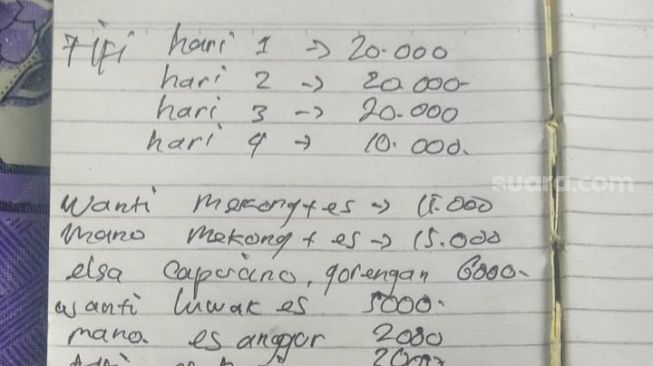 Fifi hari 1 -> 20.000
hari 2 -> 20.000-
hari 3 -> 20.000
hari 4 -> 10.000.
suara.com
Wanti mekong + es -> 11.000
mano mekong + es -> 15.000
elsa capucino, gorengan 6000-
wanti luwak es 5000.
mano. es anggur 2000